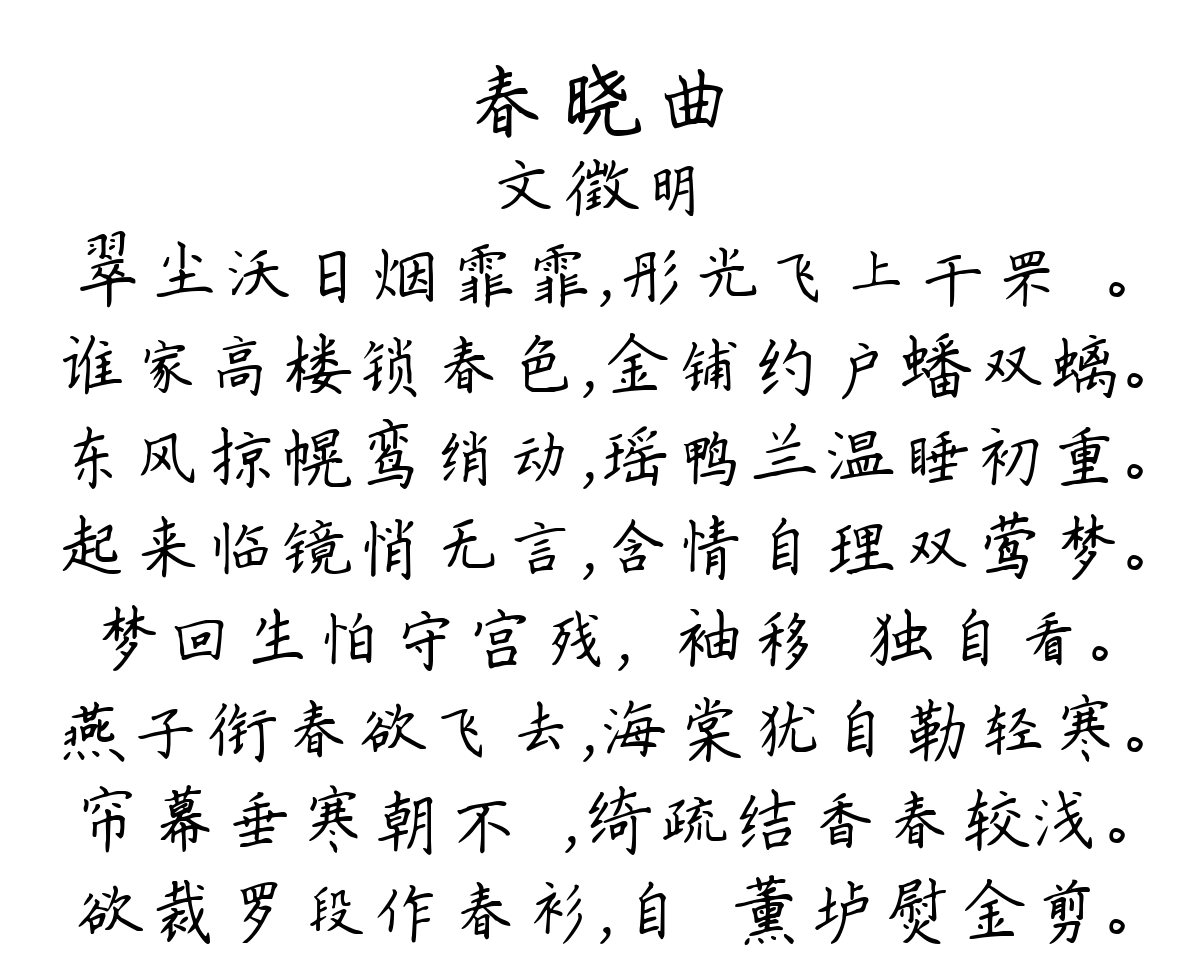 春晓曲
文徵明
翠尘沃日烟霏霏,彤光飞上千罘 。
谁家高楼锁春色,金铺约户蟠双螭。
东风掠幌鸾绡动,瑶鸭兰温睡初重。
起来临镜悄无言,含情自理双莺梦。
梦回生怕守宫残, 袖移 独自看。
燕子衔春欲飞去,海棠犹自勒轻寒。
帘幕垂寒朝不 ,绮疏结香春较浅。
欲裁罗段作春衫,自 薰垆熨金剪。